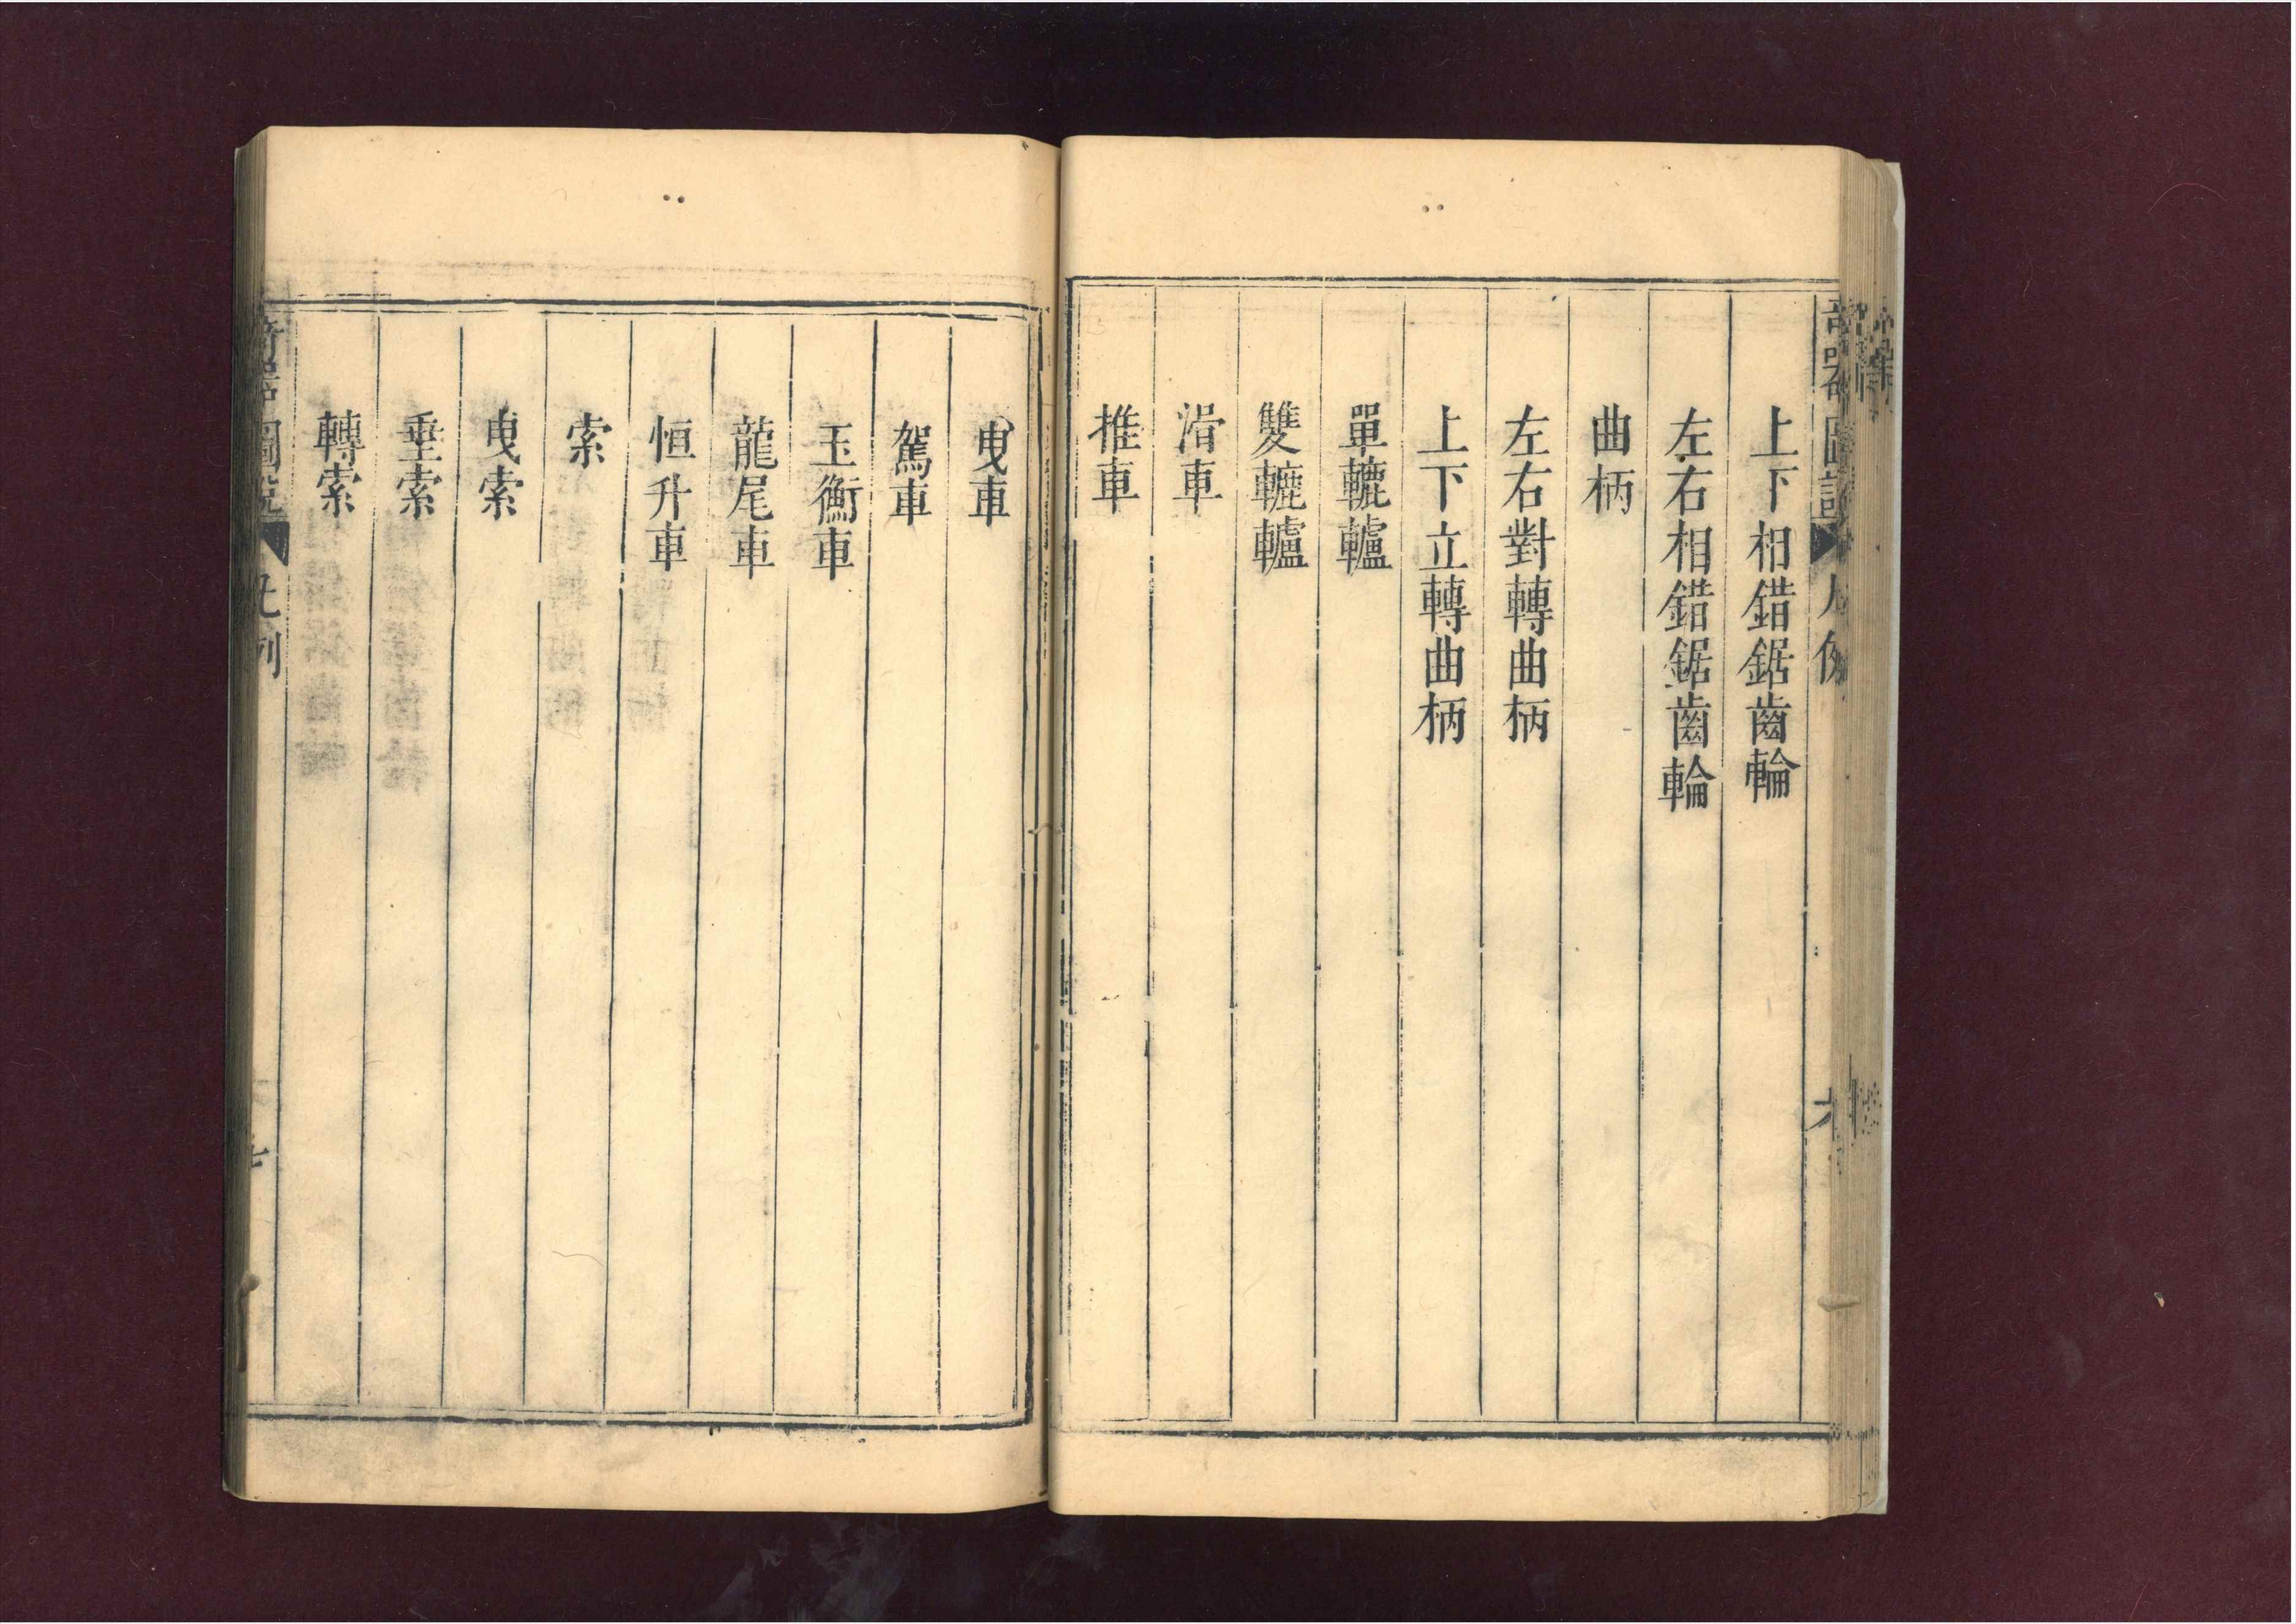 上下相錯鋸齒輪
左右相錯鋸齒輪
曲柄
左右對轉曲柄
上下立轉曲柄
單轆轤
雙轆轤
滑車
推車
曳車
駕車
玉衡車
龍尾車
恒升車
索
曳索
垂索
轉索
圖說